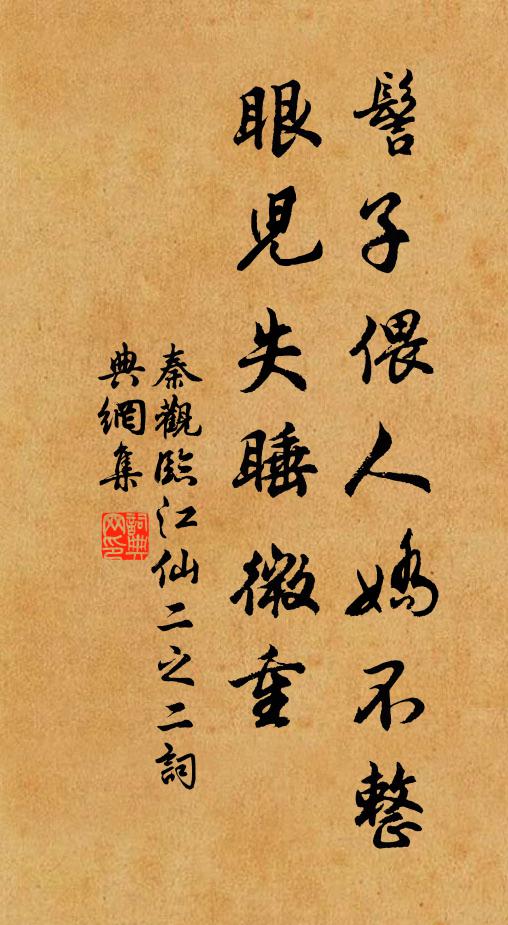 髻子偎人嬌不整
眼兒失睡微重
秦觀臨江仙二之二詞
典網集
詞典网印